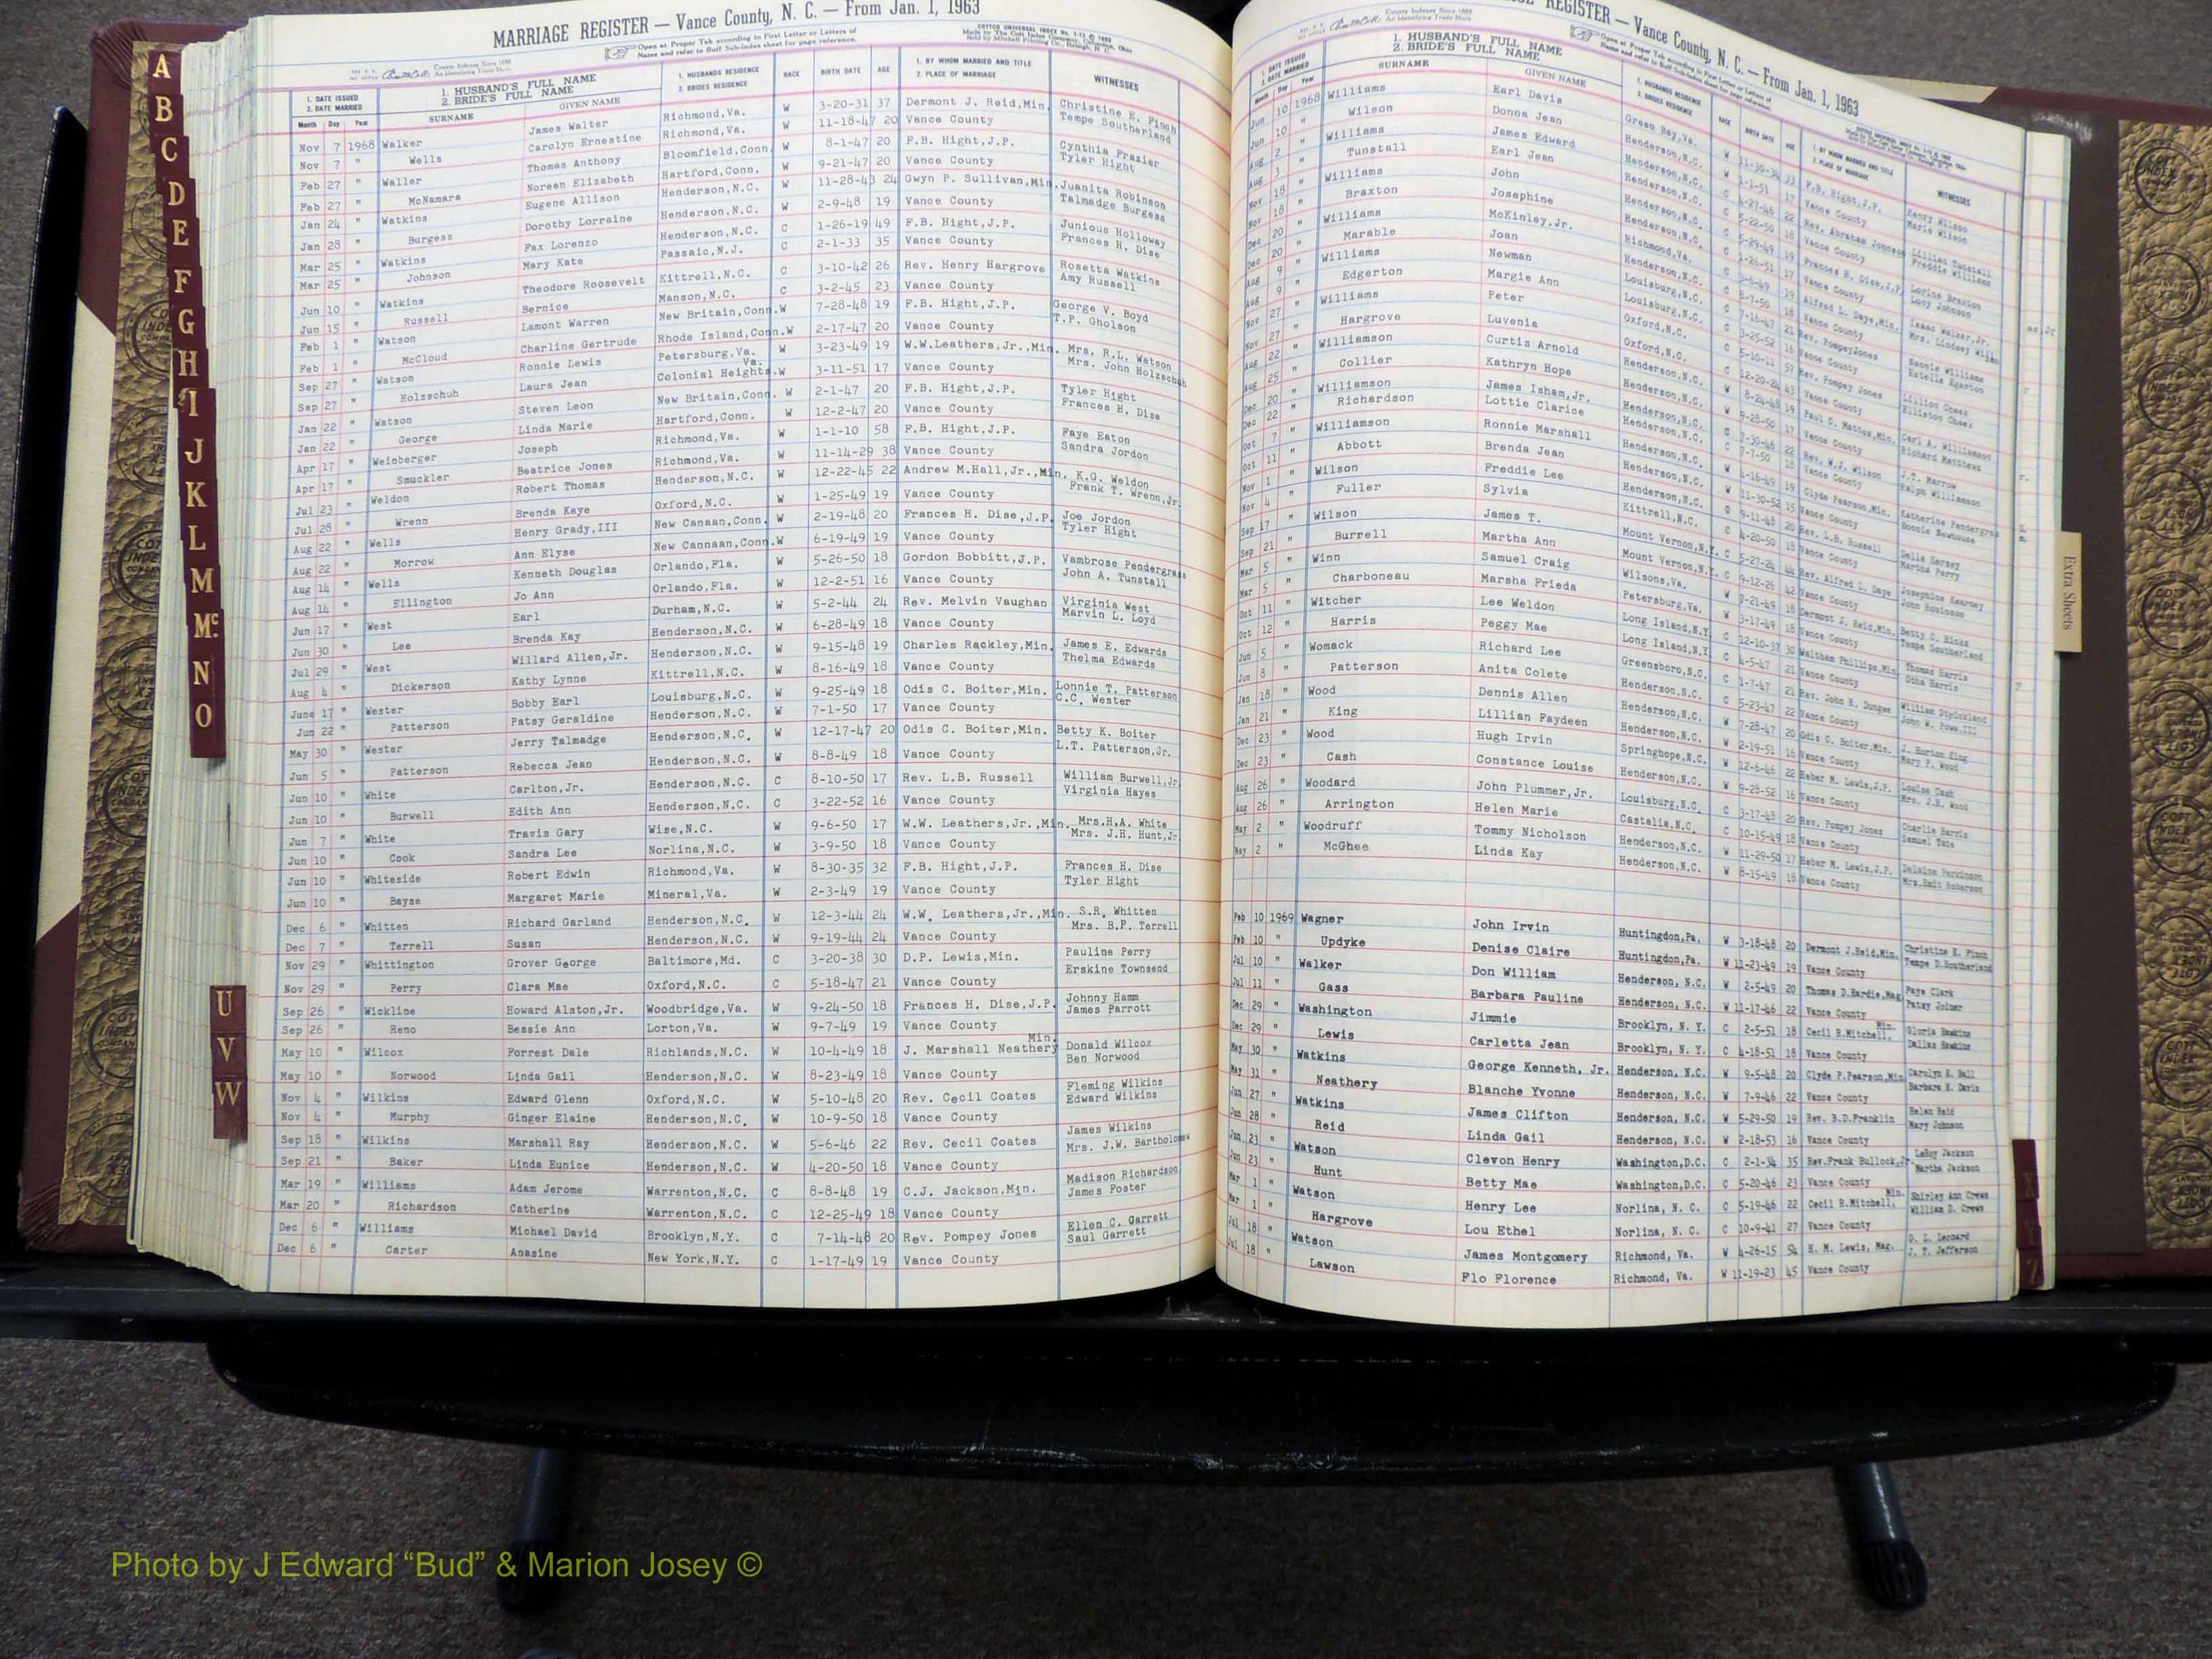 MARRIAGE REGISTER — Vance County, N. C. — From Jan. 1, 1963
Open at Proper Tab according to First Letter or Letters of
Name and refer to Buff Sub-Index sheet for page reference.
1. DATE ISSUED 2. DATE MARRIED 1. HUSBAND'S FULL NAME 2. BRIDE'S FULL NAME 1. HUSBANDS RESIDENCE 2. BRIDES RESIDENCE RACE BIRTH DATE AGE 1. BY WHOM MARRIED AND TITLE 2. PLACE OF MARRIAGE WITNESSES
Month Day Year SURNAME GIVEN NAME
Nov 7 1968 Walker James Walter Richmond,Va. W 3-20-31 37 Dermont J. Reid,Min. Christine E. Finch
Nov 7 " Wells Carolyn Ernestine Richmond,Va. W 11-18-47 20 Vance County Tempe Southerland
Feb 27 " Waller Thomas Anthony Bloomfield,Conn. W 8-1-47 20 F.B. Hight,J.P. Cynthia Frazier
Feb 27 " McNamara Noreen Elizabeth Hartford,Conn. W 9-21-47 20 Vance County Tyler Hight
Jan 24 " Watkins Eugene Allison Henderson,N.C. W 11-28-43 24 Gwyn P. Sullivan,Min. Juanita Robinson
Jan 28 " Burgess Dorothy Lorraine Henderson,N.C. W 2-9-48 19 Vance County Talmadge Burgess
Mar 25 " Watkins Pax Lorenzo Henderson,N.C. C 1-26-19 49 F.B. Hight,J.P. Junious Holloway
Mar 25 " Johnson Mary Kate Passaic,N.J. C 2-1-33 35 Vance County Frances H. Dise
Jun 10 " Watkins Theodore Roosevelt Kittrell,N.C. C 3-10-42 26 Rev. Henry Hargrove Rosetta Watkins
Jun 15 " Russell Bernice Manson,N.C. C 3-2-45 23 Vance County Amy Russell
Feb 1 " Watson Lamont Warren New Britain,Conn. W 7-28-48 19 F.B. Hight,J.P. George V. Boyd
Feb 1 " McCloud Charline Gertrude Rhode Island,Conn. W 2-17-47 20 Vance County T.P. Gholson
Sep 27 " Watson Ronnie Lewis Petersburg,Va. W 3-23-49 19 W.W.Leathers,Jr.,Min. Mrs. R.L. Watson
Sep 27 " Holzschuh Laura Jean Colonial Heights, Va. W 3-11-51 17 Vance County Mrs. John Holzschuh
Jan 22 " Watson Steven Leon New Britain,Conn. W 2-1-47 20 F.B. Hight,J.P. Tyler Hight
Jan 22 " George Linda Marie Hartford,Conn. W 12-2-47 20 Vance County Frances H. Dise
Apr 17 " Weinberger Joseph Richmond,Va. W 1-1-10 58 F.B. Hight,J.P. Faye Eaton
Apr 17 " Smuckler Beatrice Jones Richmond,Va. W 11-14-29 38 Vance County Sandra Jordon
Jul 23 " Weldon Robert Thomas Henderson,N.C. W 12-22-45 22 Andrew M.Hall,Jr.,Min. K.G. Weldon
Jul 28 " Wrenn Brenda Kaye Oxford,N.C. W 1-25-49 19 Vance County Frank T. Wrenn,Jr.
Aug 22 " Wells Henry Grady,III New Canaan,Conn. W 2-19-48 20 Frances H. Dise,J.P. Joe Jordon
Aug 22 " Morrow Ann Elyse New Cannaan,Conn. W 6-19-49 19 Vance County Tyler Hight
Aug 14 " Wells Kenneth Douglas Orlando,Fla. W 5-26-50 18 Gordon Bobbitt,J.P. Vambrose Pendergrass
Aug 14 " Ellington Jo Ann Orlando,Fla. W 12-2-51 16 Vance County John A. Tunstall
Jun 17 " West Earl Durham,N.C. W 5-2-44 24 Rev. Melvin Vaughan Virginia West
Jun 30 " Lee Brenda Kay Henderson,N.C. W 6-28-49 18 Vance County Marvin L. Loyd
Jul 29 " West Willard Allen,Jr. Henderson,N.C. W 9-15-48 19 Charles Rackley,Min. James E. Edwards
Aug 4 " Dickerson Kathy Lynne Kittrell,N.C. W 8-16-49 18 Vance County Thelma Edwards
June 17 " Wester Bobby Earl Louisburg,N.C. W 9-25-49 18 Odis C. Boiter,Min. Lonnie T. Patterson
Jun 22 " Patterson Patsy Geraldine Henderson,N.C. W 7-1-50 17 Vance County C.C. Wester
May 30 " Wester Jerry Talmadge Henderson,N.C. W 12-17-47 20 Odis C. Boiter,Min. Betty K. Boiter
Jun 5 " Patterson Rebecca Jean Henderson,N.C. W 8-8-49 18 Vance County L.T. Patterson,Jr.
Jun 10 " White Carlton,Jr. Henderson,N.C. C 8-10-50 17 Rev. L.B. Russell William Burwell,Jr.
Jun 10 " Burwell Edith Ann Henderson,N.C. C 3-22-52 16 Vance County Virginia Hayes
Jun 7 " White Travis Gary Wise,N.C. W 9-6-50 17 W.W. Leathers,Jr.,Min. Mrs.H.A. White
Jun 10 " Cook Sandra Lee Norlina,N.C. W 3-9-50 18 Vance County Mrs. J.H. Hunt,Jr.
Jun 10 " Whiteside Robert Edwin Richmond,Va. W 8-30-35 32 F.B. Hight,J.P. Frances H. Dise
Jun 10 " Bayse Margaret Marie Mineral,Va. W 2-3-49 19 Vance County Tyler Hight
Dec 6 " Whitten Richard Garland Henderson,N.C. W 12-3-44 24 W.W. Leathers,Jr.,Min. S.R. Whitten
Dec 7 " Terrell Susan Henderson,N.C. W 9-19-44 24 Vance County Mrs. B.P. Terrell
Nov 29 " Whittington Grover George Baltimore,Md. C 3-20-38 30 D.P. Lewis,Min. Pauline Perry
Nov 29 " Perry Clara Mae Oxford,N.C. C 5-18-47 21 Vance County Erskine Townsend
Sep 26 " Wickline Howard Alston,Jr. Woodbridge,Va. W 9-24-50 18 Frances H. Dise,J.P. Johnny Hamm
Sep 26 " Reno Bessie Ann Lorton,Va. W 9-7-49 19 Vance County James Parrott
May 10 " Wilcox Forrest Dale Richlands,N.C. W 10-4-49 18 J. Marshall Neathery Min. Donald Wilcox
May 10 " Norwood Linda Gail Henderson,N.C. W 8-23-49 18 Vance County Ben Norwood
Nov 4 " Wilkins Edward Glenn Oxford,N.C. W 5-10-48 20 Rev. Cecil Coates Fleming Wilkins
Nov 4 " Murphy Ginger Elaine Henderson,N.C. W 10-9-50 18 Vance County Edward Wilkins
Sep 18 " Wilkins Marshall Ray Henderson,N.C. W 5-6-46 22 Rev. Cecil Coates James Wilkins
Sep 21 " Baker Linda Eunice Henderson,N.C. W 4-20-50 18 Vance County Mrs. J.W. Bartholomew
Mar 19 " Williams Adam Jerome Warrenton,N.C. C 8-8-48 19 C.J. Jackson,Min. Madison Richardson
Mar 20 " Richardson Catherine Warrenton,N.C. C 12-25-49 18 Vance County James Foster
Dec 6 " Williams Michael David Brooklyn,N.Y. C 7-14-48 20 Rev. Pompey Jones Ellen C. Garrett
Dec 6 " Carter Anasine New York,N.Y. C 1-17-49 19 Vance County Saul Garrett
REGISTER — Vance County, N. C. — From Jan. 1, 1963
1. HUSBAND'S FULL NAME 2. BRIDE'S FULL NAME
SURNAME GIVEN NAME WITNESSES
Jun 10 1968 Williams Earl Davis Green Bay,Va. F.B. Hight,J.P. Henry Wilson
Jun 10 " Wilson Donna Jean Henderson,N.C. Vance County Marie Wilson
Aug 2 " Williams James Edward Henderson,N.C. Rev. Abraham Johnson Lillian Tunstall
Aug 3 " Tunstall Earl Jean Henderson,N.C. Vance County Freddie Williams
Nov 18 " Williams John Henderson,N.C. Frances H. Dise,J.P. Lorine Braxton
Nov 18 " Braxton Josephine Henderson,N.C. Vance County Lucy Johnson
Dec 20 " Williams McKinley,Jr. Richmond,Va. Alfred L. Daye,Min.
Dec 20 " Marable Joan Henderson,N.C. Vance County
Aug 9 " Williams Newman Louisburg,N.C. Rev. PompeyJones Estelle Egerton
Aug 9 " Edgerton Margie Ann Louisburg,N.C. Vance County
Nov 27 " Williams Peter Oxford,N.C. Rev. Pompey Jones
Nov 27 " Hargrove Luvenia Oxford,N.C. Vance County
Aug 22 " Williamson Curtis Arnold Henderson,N.C. Carl A. Williamson
Aug 25 " Collier Kathryn Hope Henderson,N.C. Vance County Richard Matthews
Dec 20 " Williamson James Isham,Jr. Henderson,N.C. Rev. W.J. Wilson
Dec 22 " Richardson Lottie Clarice Henderson,N.C. Vance County Ralph Williamson
Oct 7 " Williamson Ronnie Marshall Henderson,N.C. Clyde Pearson,Min. Katherine Pendergrass
Oct 11 " Abbott Brenda Jean Henderson,N.C. Vance County Bonnie Newhouse
Nov 1 " Wilson Freddie Lee Henderson,N.C. Rev. L.B. Russell
Nov 4 " Fuller Sylvia Kittrell,N.C. Vance County Martha Perry
Sep 17 " Wilson James T. Mount Vernon,N.Y. C Rev. Alfred L. Daye Josephine Kearney
Sep 21 " Burrell Martha Ann Mount Vernon,N.Y. C 9-12-26 42 Vance County John Robinson
Mar 5 " Winn Samuel Craig Wilsons,Va. W 7-21-49 18 Dermont J. Reid,Min. Betty C. Hicks
Mar 5 " Charboneau Marsha Frieda Petersburg,Va. W 3-17-49 18 Vance County Tempe Southerland
Oct 11 " Witcher Lee Weldon Long Island,N.Y. C 12-10-37 30 Waltham Phillips,Min. Thomas Harris
Oct 12 " Harris Peggy Mae Long Island,N.Y. C 4-5-47 21 Vance County
Jun 5 " Womack Richard Lee Greensboro,N.C. C 1-7-47 21
Jun 8 " Patterson Anita Colete Henderson,N.C. C 5-23-47 22 Vance County
Jan 18 " Wood Dennis Allen Henderson,N.C. W 7-28-47 20 Odis C. Boiter,Min. J. Horton King
Jan 21 " King Lillian Faydeen Henderson,N.C. W 2-19-51 16 Vance County Mary P. Wood
Dec 23 " Wood Hugh Irvin Springhope,N.C. W 12-6-46 22 Heber M. Lewis,J.P. Louise Cash
Dec 23 " Cash Constance Louise Henderson,N.C. W 9-28-52 16 Vance County Mrs. J.H. Wood
Aug 26 " Woodard John Plummer,Jr. Louisburg,N.C. C 3-17-48 20 Rev. Pompey Jones Charlie Harris
Aug 26 " Arrington Helen Marie Castalia,N.C. C 10-15-49 18 Vance County
May 2 " Woodruff Tommy Nicholson Henderson,N.C. W 11-29-50 17 Heber M. Lewis,J.P.
May 2 " McGhee Linda Kay Henderson,N.C. W 8-15-49 18 Vance County
Feb 10 1969 Wagner John Irvin Huntingdon,Pa. W 3-18-48 20 Dermont J.Reid,Min. Christine E. Finch
Feb 10 " Updyke Denise Claire Huntingdon,Pa. W 11-23-49 19 Vance County Tempe D.Southerland
Jul 10 " Walker Don William Henderson, N.C. W 2-5-49 20 Thomas D.Hardie,Mag. Faye Clark
Jul 11 " Gass Barbara Pauline Henderson, N.C. W 11-17-46 22 Vance County Patsy Joiner
Dec 29 " Washington Jimmie Brooklyn, N. Y. C 2-5-51 18 Cecil R.Mitchell, Min. Gloria Hawkins
Dec 29 " Lewis Carletta Jean Brooklyn, N. Y. C 4-18-51 18 Vance County Dallas Hawkins
May 30 " Watkins George Kenneth, Jr. Henderson, N.C. W 9-5-48 20 Clyde P.Pearson,Min. Carolyn E. Ball
May 31 " Neathery Blanche Yvonne Henderson, N.C. W 7-9-46 22 Vance County Barbara N. Davis
Jun 27 " Watkins James Clifton Henderson, N.C. W 5-29-50 19 Rev. B.D.Franklin Helen Reid
Jun 28 " Reid Linda Gail Henderson, N.C. W 2-18-53 16 Vance County Mary Johnson
Jun 23 " Watson Clevon Henry Washington,D.C. C 2-1-34 35 Rev.Frank Bullock,Jr. LeRoy Jackson
Jun 23 " Hunt Betty Mae Washington,D.C. C 5-20-46 23 Vance County Martha Jackson
Mar 1 " Watson Henry Lee Norlina, N. C. C 5-19-46 22 Cecil R.Mitchell, Min. Shirley Ann Crews
Mar 1 " Hargrove Lou Ethel Norlina, N. C. C 10-9-41 27 Vance County William D. Crews
Jul 18 " Watson James Montgomery Richmond, Va. W 4-26-15 54 H. M. Lewis, Mag. G. L. Leonard
Jul 18 " Lawson Flo Florence Richmond, Va. W 11-19-23 45 Vance County J. T. Jefferson
A
B
C
D
E
F
G
H
I
J
K
L
M
Mc
N
O
U
V
W
Extra Sheets
Photo by J Edward “Bud” & Marion Josey ©